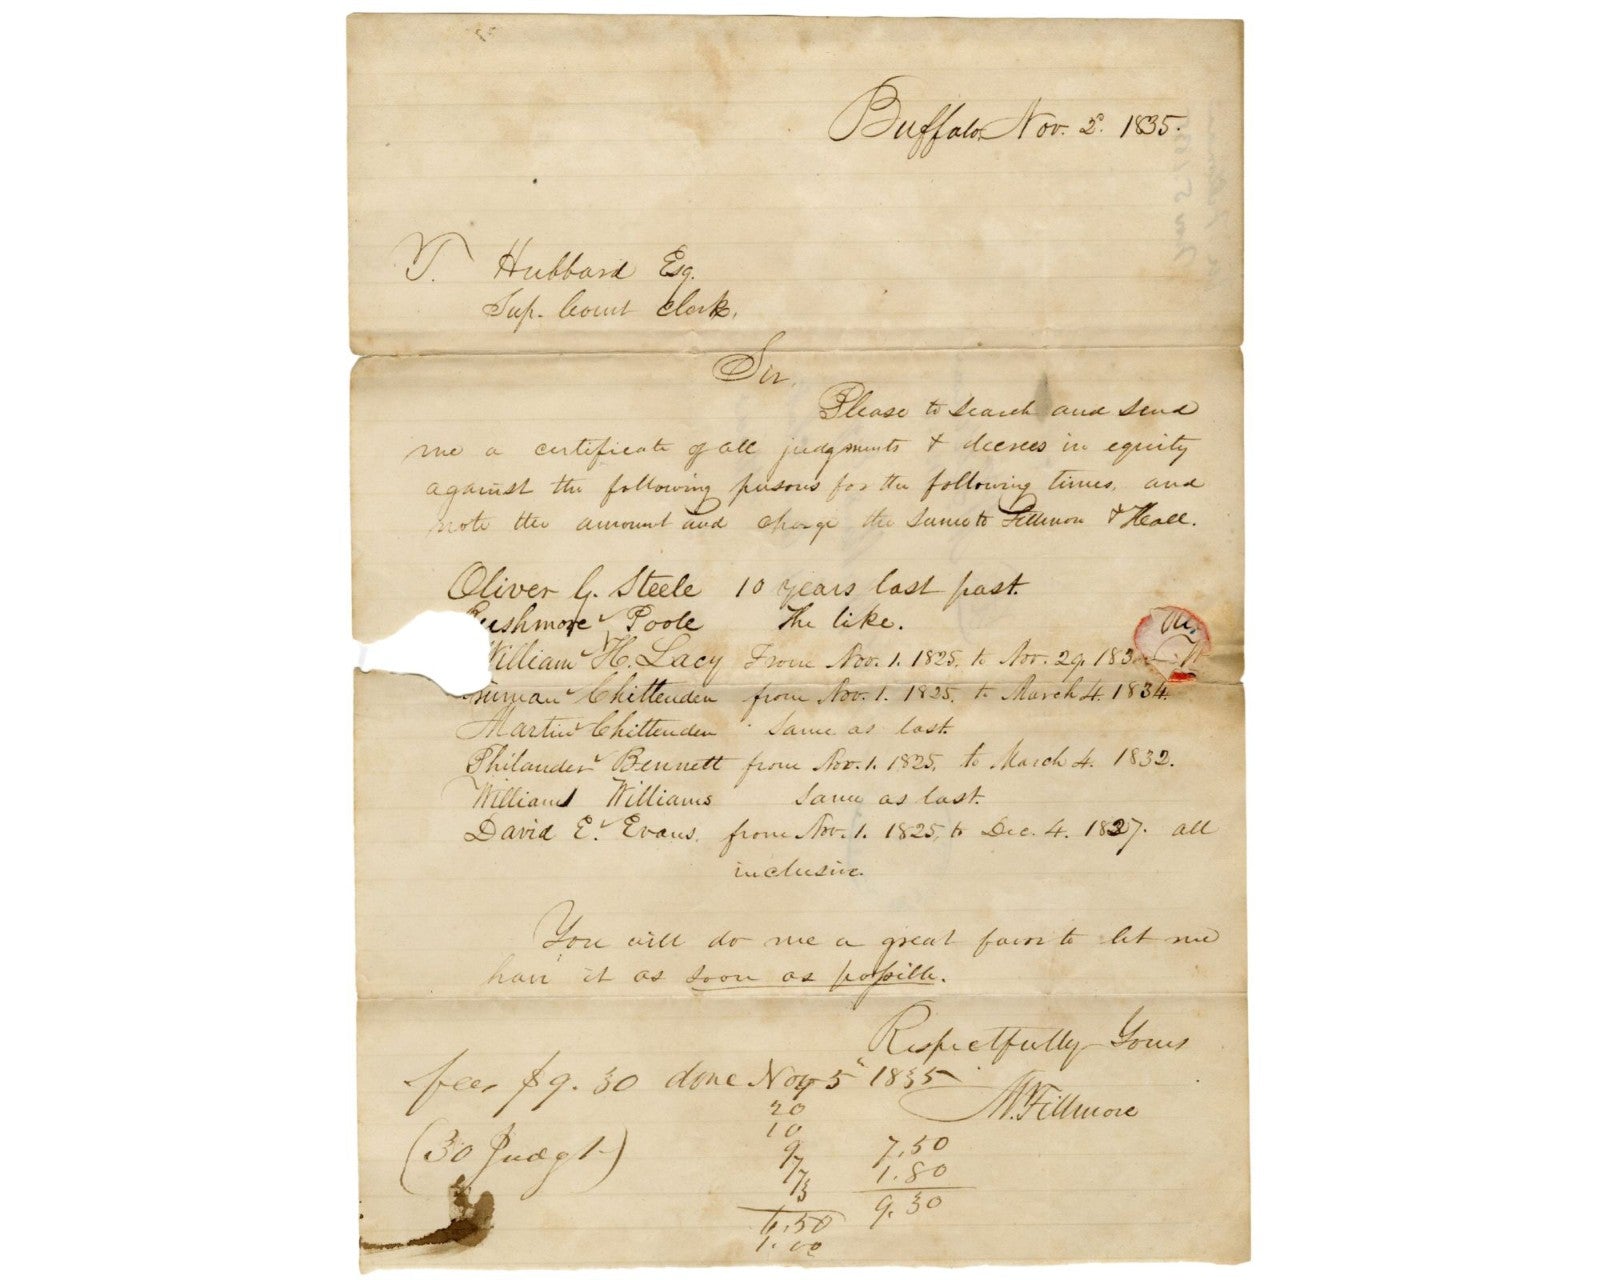 Buffalo, Nov. 2. 1835.
T. Hubbard Esq.
Sup. Court Clerk.
Sir,
Please to search and send
me a certificate of all judgments & decrees in equity
against the following persons for the following times, and
note the amount and charge the same to Fillmore & Hall.
Oliver G. Steele 10 years last past.
Rushmore Poole The like.
William H. Lacy From Nov. 1. 1825. to Nov. 29. 183
Truman Chittenden from Nov. 1. 1825. to March 4. 1834.
Martin Chittenden same as last.
Philander Bennett from Nov. 1. 1825, to March 4. 1832.
William Williams same as last.
David E. Evans, from Nov. 1. 1825, to Dec. 4. 1827. all
inclusive.
You will do me a great favor to let me
have it as soon as possible.
Respectfully Yours
M. Fillmore
fees $9.30 done Nov 5 1835
20
10
9
7.50
1.80
9.30
(30 Judgt)
6.50
1.00